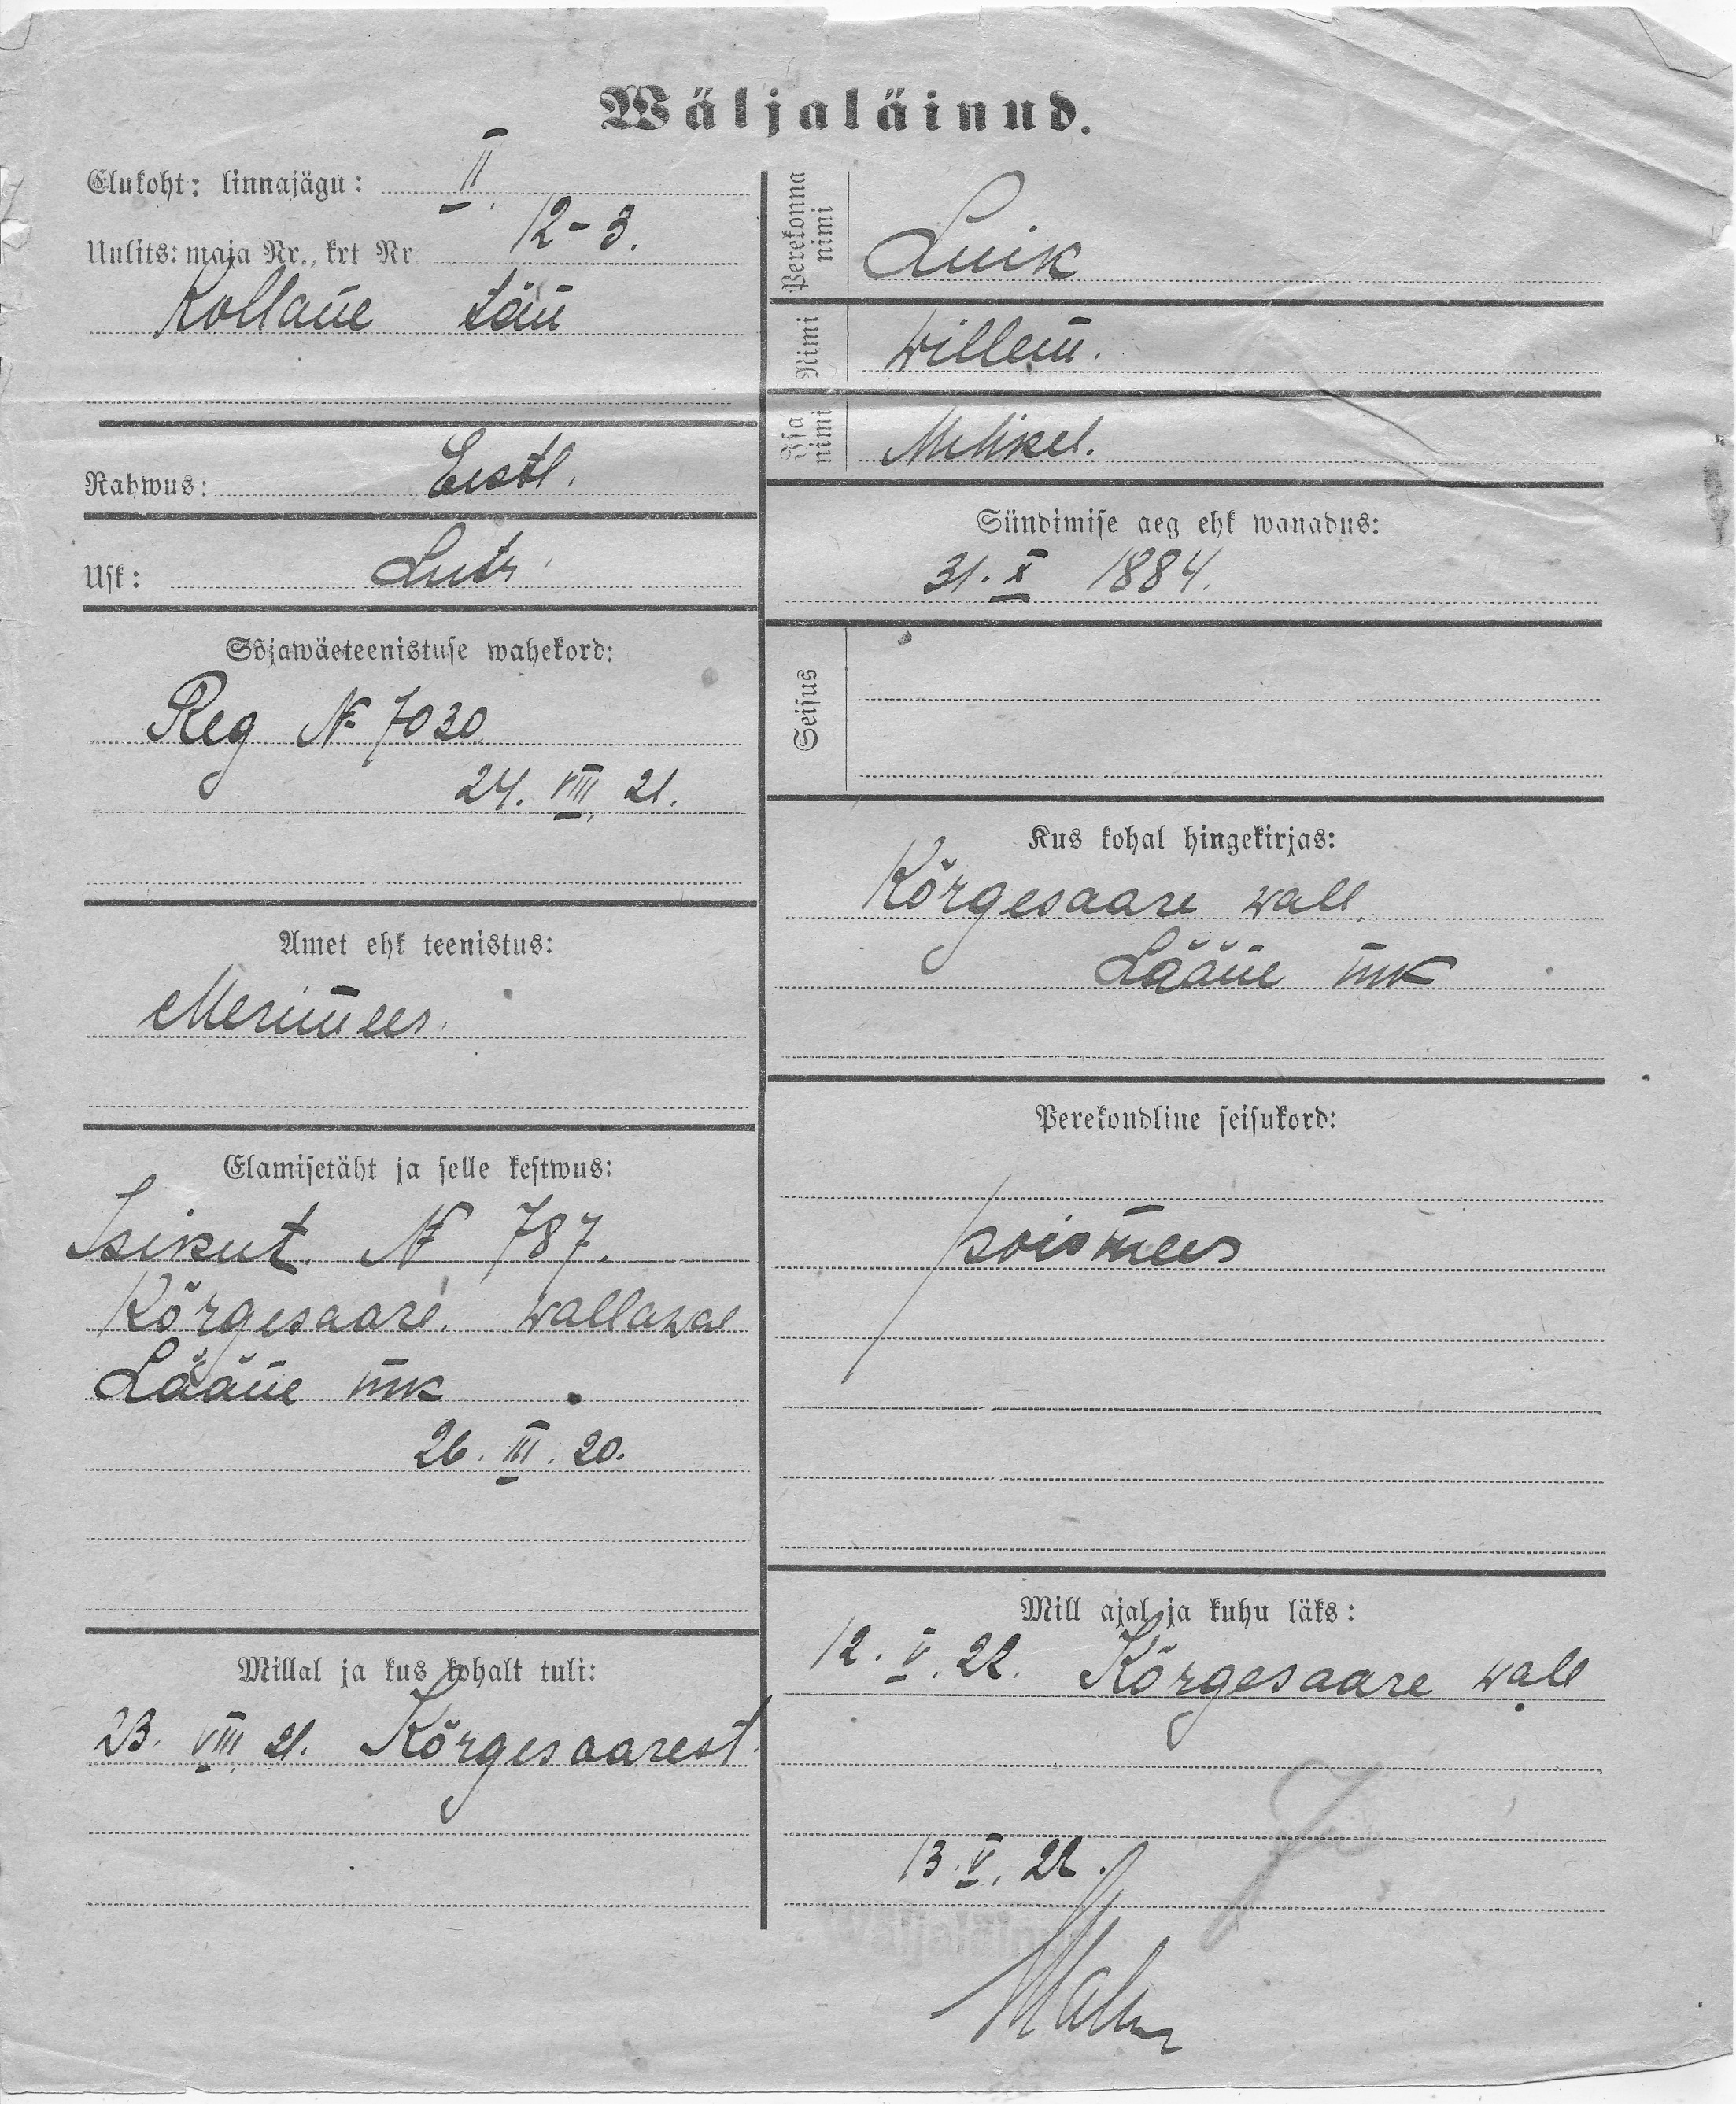 Wäljaläinud.
Elukoht: linnajägu: II
Uulits: maja Nr., krt Nr. 12-3.
Kollane tän
Rahwus: Eestl.
Usk: Luth
Sõjawäeteenistuse wahekord:
Reg № 7030
24. VIII. 21.
Amet ehk teenistus:
Merimees.
Elamisetäht ja selle kestwus:
Isikut. № 787.
Kõrgesaare. wallawal
Lääne mk
26. III. 20.
Millal ja kus kohalt tuli:
23. VIII. 21. Kõrgesaarest.
Perekonna nimi Luik
Nimi Willem.
Isa nimi Mihkel.
Sündimise aeg ehk wanadus:
31. X 1884.
Seisus
Kus kohal hingekirjas:
Kõrgesaare wall.
Lääne mk
Perekondline seisukord:
poismees
Mill ajal ja kuhu läks:
12. V. 22. Kõrgesaare wall
13. V. 22.
Wäljaläinud